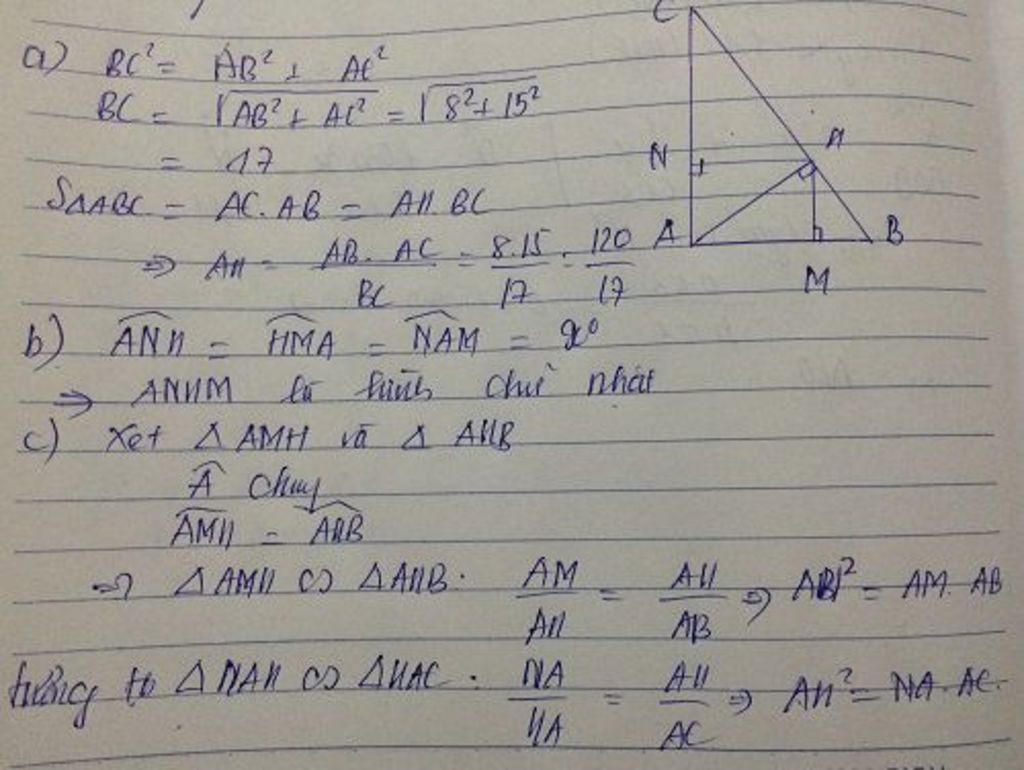 a) BC² = AB² + AC²
BC = √(AB² + AC²) = √(8² + 15²)
= 17
SΔABC = AC.AB = AH.BC
=> AH = AB.AC/BC = 8.15/17 = 120/17
b) ANH = HMA = NAM = 90°
=> ANHM là hình chữ nhật
c) Xét Δ AMH và Δ AHB
A chung
AMH = AHB
=> ΔAMH ∽ ΔAHB. AM/AH = AH/AB => AH² = AM.AB
tương tự ΔNAH ∽ ΔHAC. NA/HA = AH/AC => AH² = NA.AC.
C
N
H
A
B
M